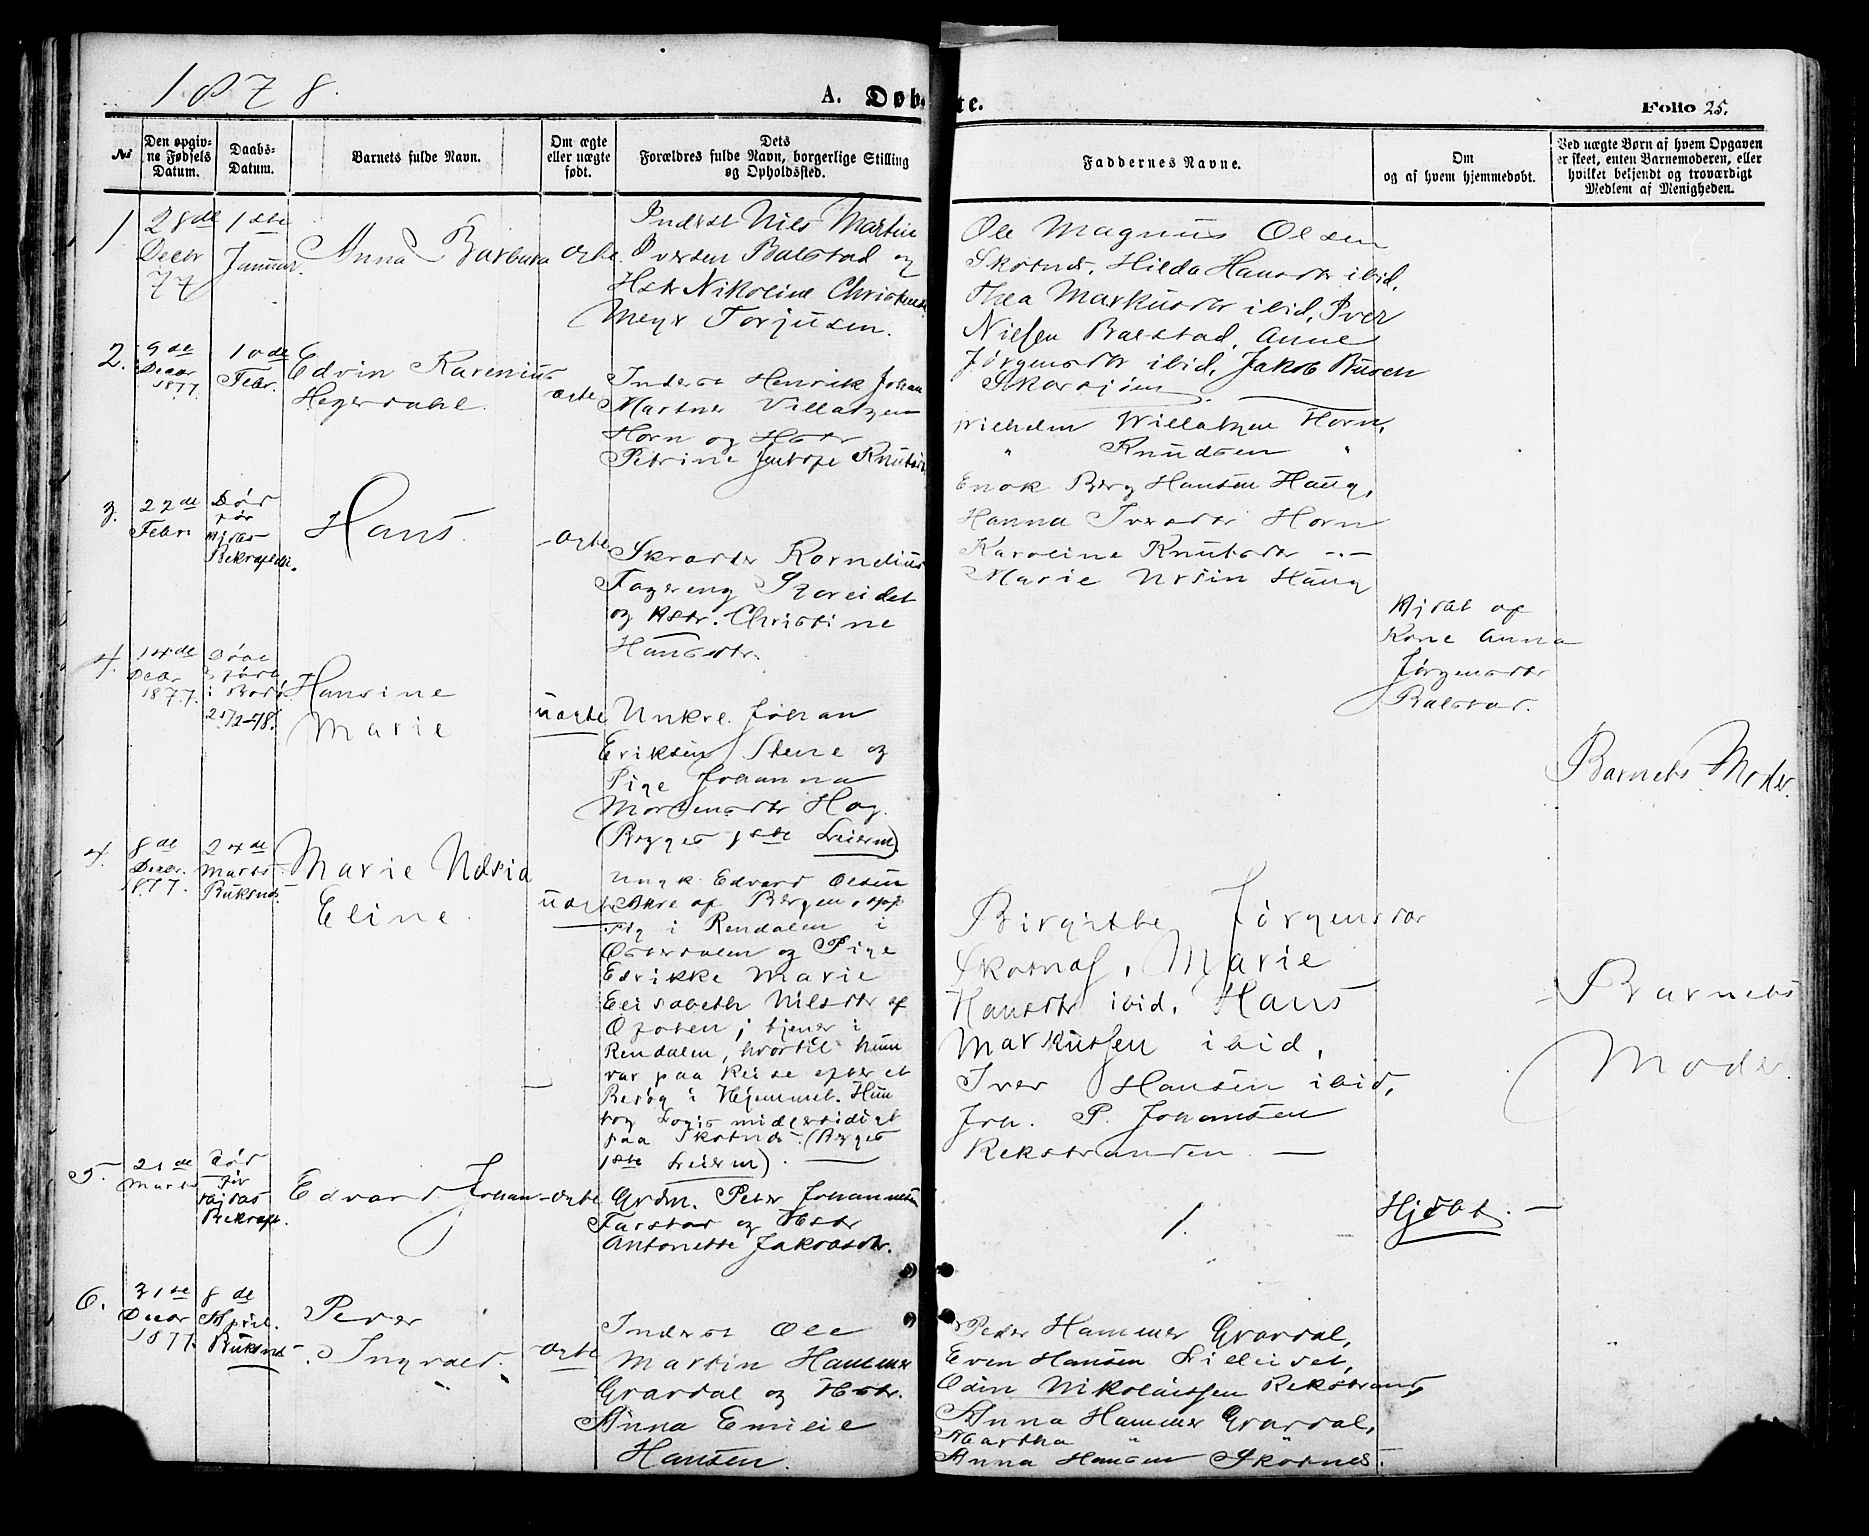 1878.
A. Døbte.
Folio 25.
No
Den opgiv-
ne Fødsels
Datum.
Daabs-
Datum.
Barnets fulde Navn.
Om ægte
eller uægte
født.
Dets
Forældres fulde Navn, borgerlige Stilling
og Opholdssted.
Faddernes Navne.
Om
og af hvem hjemmedøbt.
Ved uægte Børn af hvem Opgaven
er skeet, enten Barnemoderen, eller
hvilket bekjendt og troværdigt
Medlem af Menigheden.
1
28de
Decbr
77
1ste
Januar.
Anna Barbara
ægte.
Inderst Nils Martin
Iversen Balstad og
Hstr Nikoline
Meyer Torjusen.
Ole Magnus Olsen
Skotnes, Hilda Hansdtr ibid,
Thea Markusdtr ibid, Iver
Nielsen Balstad, Anne
Jørgensdtr ibid, Jakob
2.
9de
Decbr
1877.
10de
Febr.
Edvin Karenius
Hegerdahl.
ægte
Inderst Henrik Johan
Martner Villatzen
Horn og Hstr
Petrine Jentofe
Willatzen Horn,
" Knudsen "
Enok Berg Hansen Haug,
Hanna Iversdtr Horn
Karoline Knutsdtr -"-
Marie Ursin Haug
3.
22de
Febr
Død
før
Hjdbs
Bekræftelse.
Hans.
ægte
Kornelius
Fagereng
og Hstr. Christine
Hansdtr.
Hjdbt af
Kone Anna
Jørgensdtr
Balstad.
4.
14de
Decbr
1877.
Hansine
Marie
uægte
Unkrl. Johan
Eriksen Stene og
Pige Johanna
Mortensdtr Hag.
(Begges 1ste Leierm).
Barnets Moder.
4.
8de
Decbr.
1877.
24de
Marts
Buksnes.
Marie
Eline.
uægte
Ungk. Edvard Olsen
af Bergen, oph.
sig i Rendalen i
Østerdalen og Pige
Edrikke Marie
Elisabeth Nilsdtr af
Ofoten, tjener i
Rendalen, hvortil hun
var paa Reise efter et
Besøg i Hjemmet. Hun
tog Logis midlertidigt
paa Skotnes. (Begges
1ste Leierm).
Birgithe Jørgensdtr
Skotnes, Marie
Hansdtr ibid. Hans
Markussen ibid,
Iver Hansen ibid,
Joh. P. Johansen
Rekstranden.
Barnets
Moder.
5.
21de
Marts
Død
før
Hjdbs
Bekræft.
Edvard Johan
ægte
Grdm. Peter Johannesen
Farstad og Hstr
Antonette Jakobsdtr.
1.
Hjdbt.
6.
31te
Decbr
1877.
8de
April.
Buksnes
Peder
Ingvald.
ægte
Inderst Ole
Martin Hammer
Gravdal og Hstr.
Anna Emilie
Hansen.
Peder Hammer Gravdal,
Even Hansen Lilleidet,
Odin Nikolaissen Rekstrand,
Anna Hammer Gravdal,
Martha " "
Anna Hansen Skotnes.